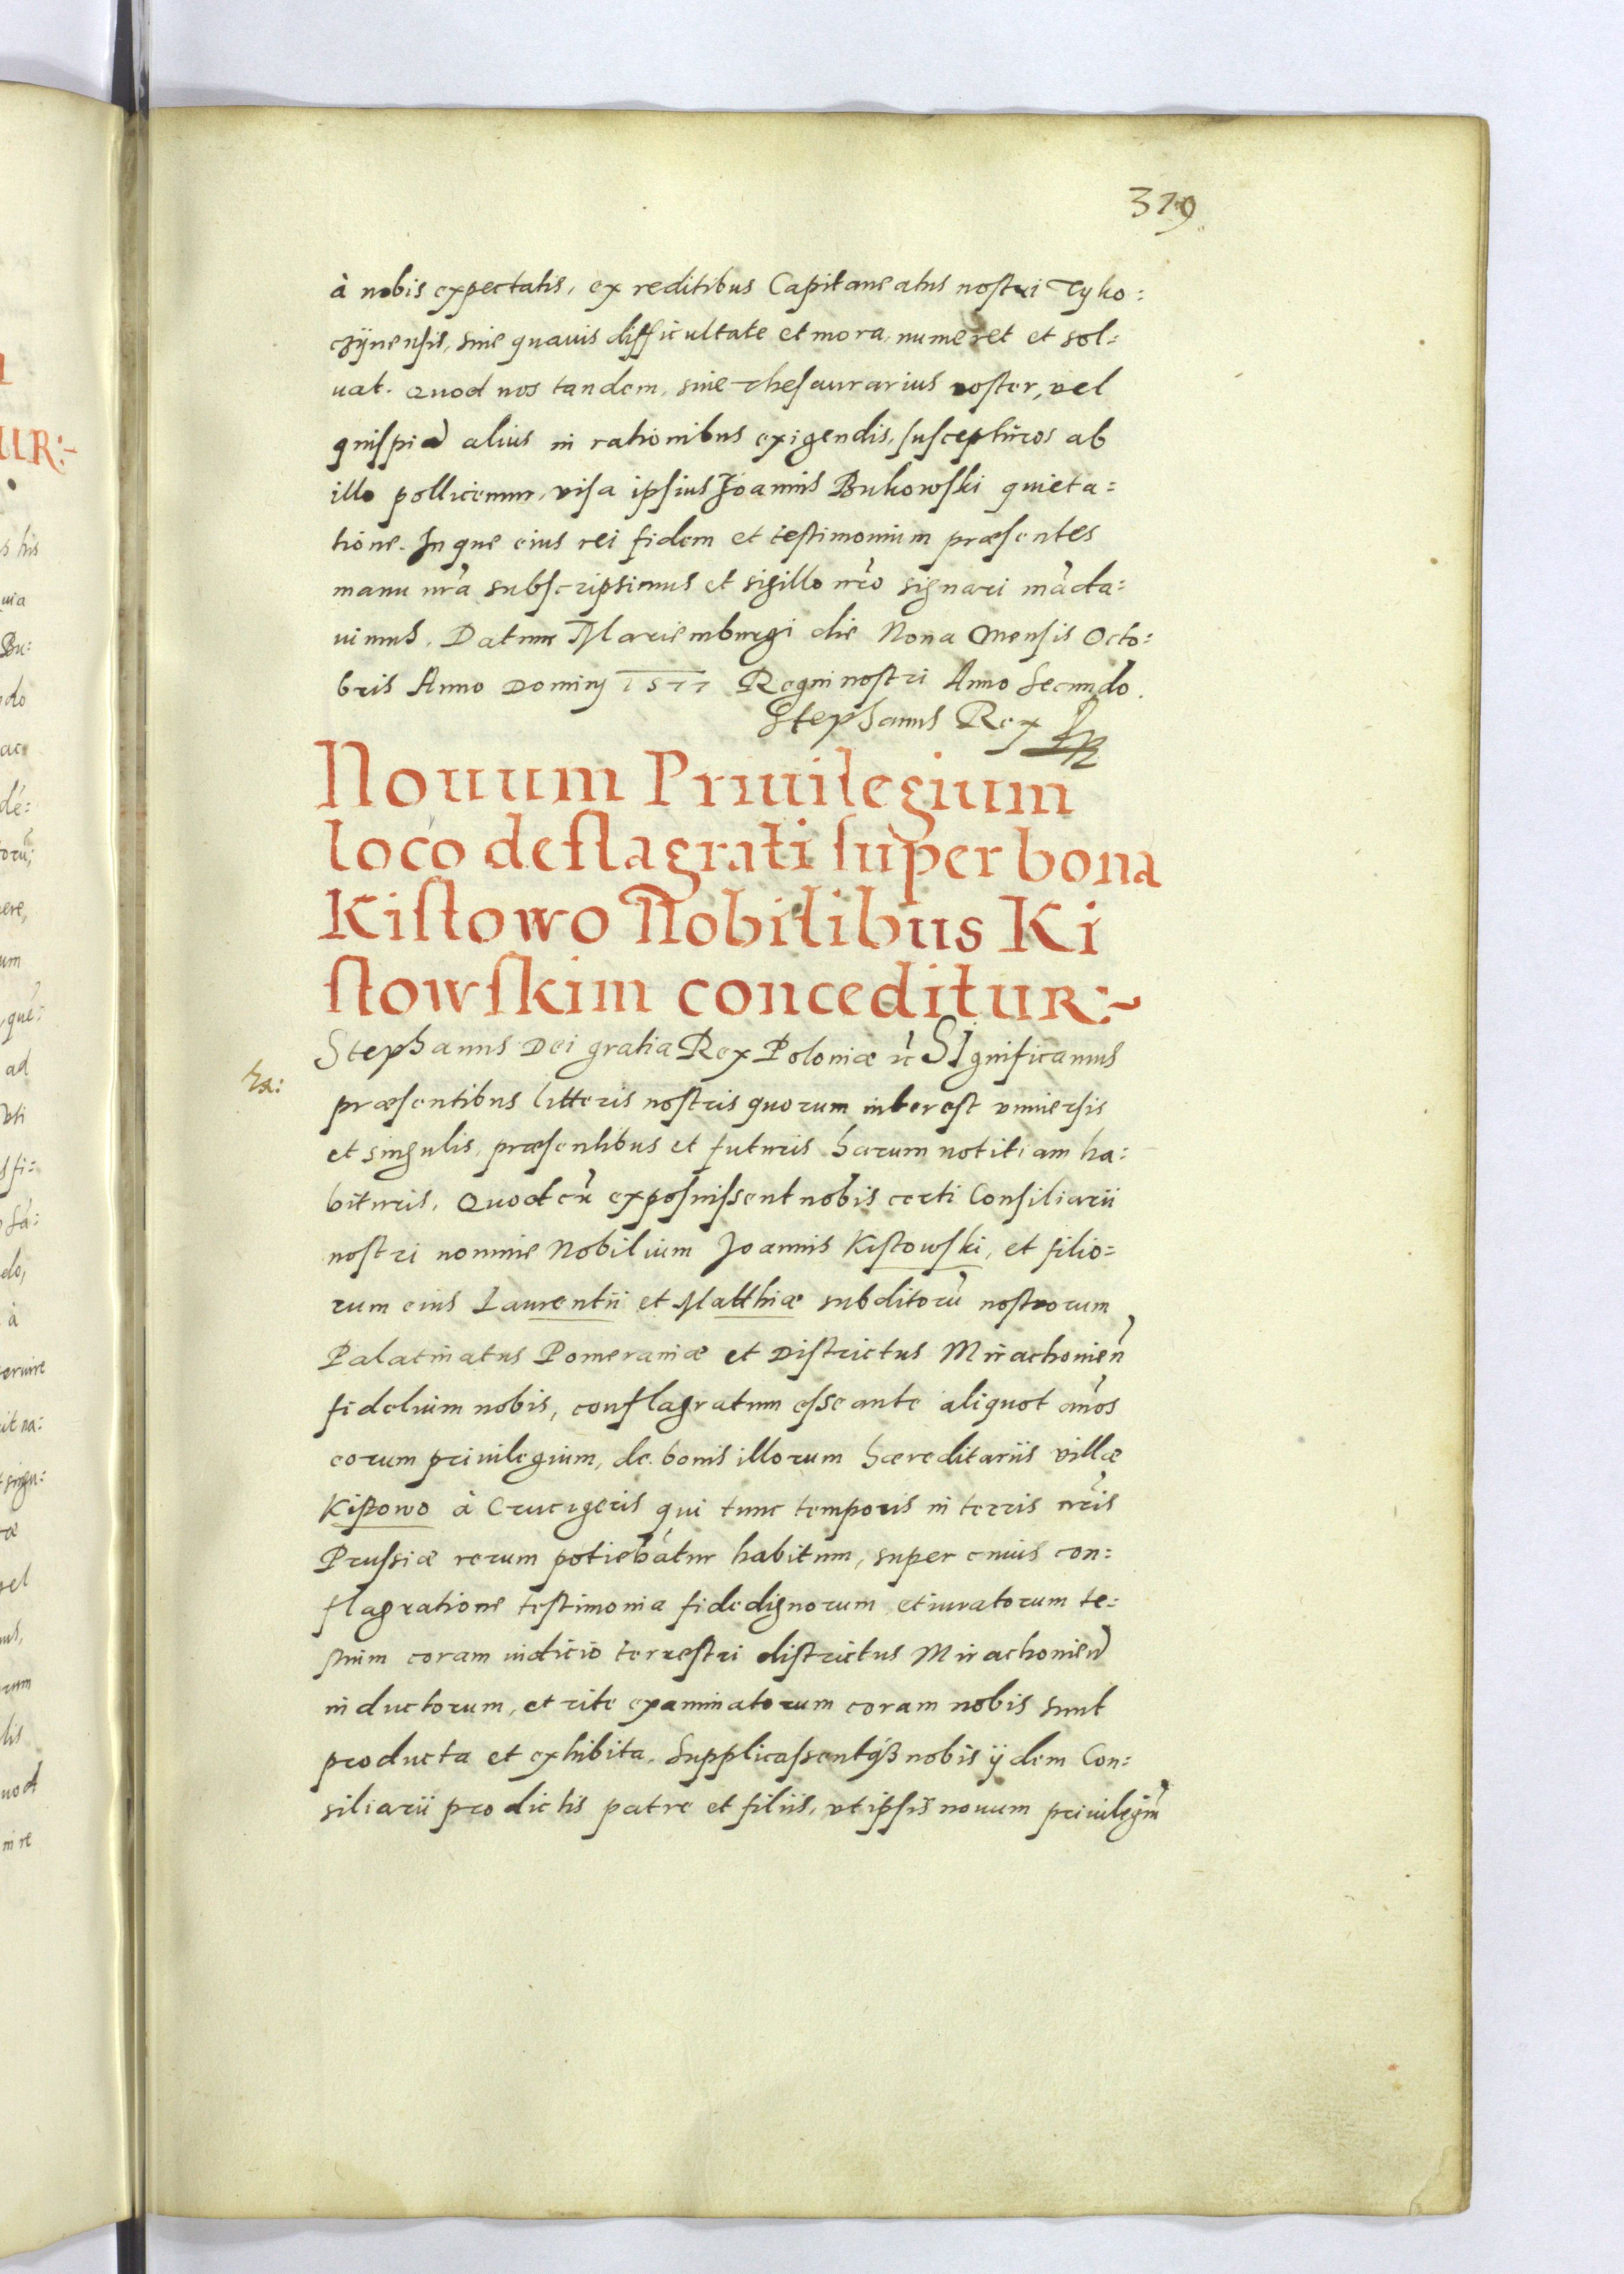 319
à nobis expectatis, ex reditibus Capitaneatus nostri Tyko:
czÿnensis, sine quauis difficultate et mora, numeret et sol:
uat. Quod nos tandem, siue Thesaurarius noster, vel
quispiã alius in rationibus exigendis, suscepturos ab
illo pollicemur, visa ipsius Joannis Bukowski quieta:
tione. In que eius rei fidem et testimonium præsentes
manu nrã subscripsimus et sigillo nrõ signari mãda:
uimus. Datum Mariemburgi die Nona Mensis Octo:
bris Anno Dominj 1577 Regni nostri Anno Secundo.
Stephanus Rex
Nouum Priuilegium
loco deflagrati super bona
Kistowo Nobilibus Ki
stowskim conceditur:~
Stephanus Dei gratia Rex Poloniæ &c Significamus
præsentibus litteris nostris quorum interest vniuersis
et singulis, præsentibus et futuris harum notitiam ha:
bituris. Quod cũ exposuissent nobis certi Consiliarii
nostri nomine Nobilium Joannis Kistowski, et filio:
rum eius Laurentii et Matthiæ subditorũ nostrorum
Palatinatus Pomeraniæ et Districtus Mirachonieñ
fidelium nobis, conflagratum esse ante aliquot ãnos
eorum priuilegium, de bonis illorum hæreditariis villæ
Kistowo à Crucigeris qui tunc temporis in terris nr̃is
Prussiæ rerum potiebãtur habitum, super cuius con:
flagratione testimonia fide dignorum et iuratorum te:
stium coram iudicio terrestri districtus Mirachonieñ
inductorum, et rite examinatorum coram nobis sunt
producta et exhibita. Supplicassentq3 nobis ijdem Con:
siliarii pro dictis patre et filiis, vt ipsis nouum priuilegiũ